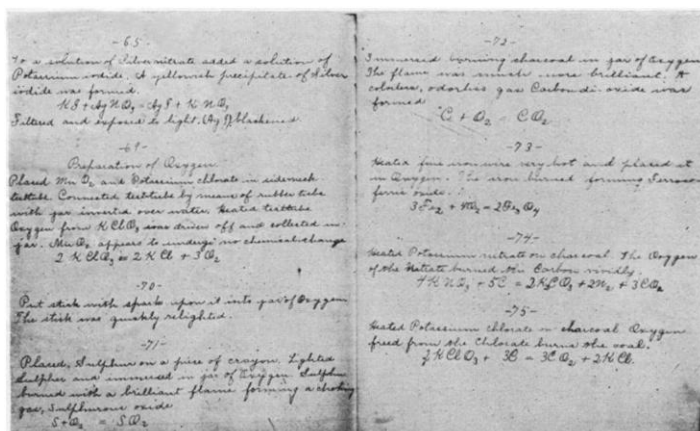 -65-
To a solution of Silver nitrate added a solution of
Potassium iodide. A yellowish precipitate of Silver
iodide was formed.
KI + AgNO3 = AgI + KNO3
Filtered and exposed to light. (AgI) blackened.
-69-
Preparation of Oxygen.
Placed MnO2 and Potassium chlorate in sideneck
testtube. Connected testtube by means of rubber tube
with jar inverted over water. Heated testtube
Oxygen from KClO3 was driven off and collected in
jar. MnO2 appears to undergo no chemical change
2 KClO3 = 2 KCl + 3O2
-70-
Put stick with spark upon it into jar of Oxygen
The stick was quickly relighted.
-71-
Placed Sulphur on a piece of crayon. Lighted
Sulphur and immersed in jar of Oxygen. Sulphur
burned with a brilliant flame forming a choking
gas, Sulphurous oxide
S + O2 = SO2
-72-
Immersed burning charcoal in jar of Oxygen
The flame was much more brilliant. A
colorless, odorless gas Carbon di-oxide was
formed
C + O2 = CO2
-73-
Heated fine iron wire very hot and placed it
in Oxygen. The iron burned forming Ferroso
ferric oxide.
3Fe2 + 4O2 = 2Fe3O4
-74-
Heated Potassium nitrate on charcoal. The Oxygen
of the Nitrate burned the Carbon vividly.
4KNO3 + 5C = 2K2CO3 + 2N2 + 3CO2
-75-
Heated Potassium chlorate on charcoal Oxygen
freed from the Chlorate burns the coal.
2KClO3 + 3C = 3CO2 + 2KCl.